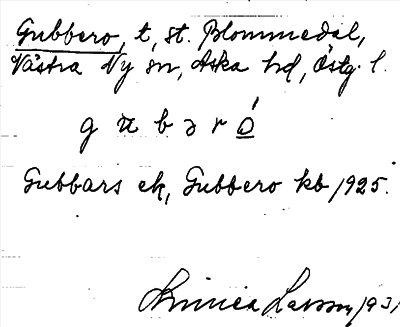 Gubbero, t, st. Blommedal,
Västra Ny sn, Aska hd, Östg. l.
g ʉ b ə r ó
Gubbars ek, Gubbero kb 1925.
Linnea Larsson, 1931